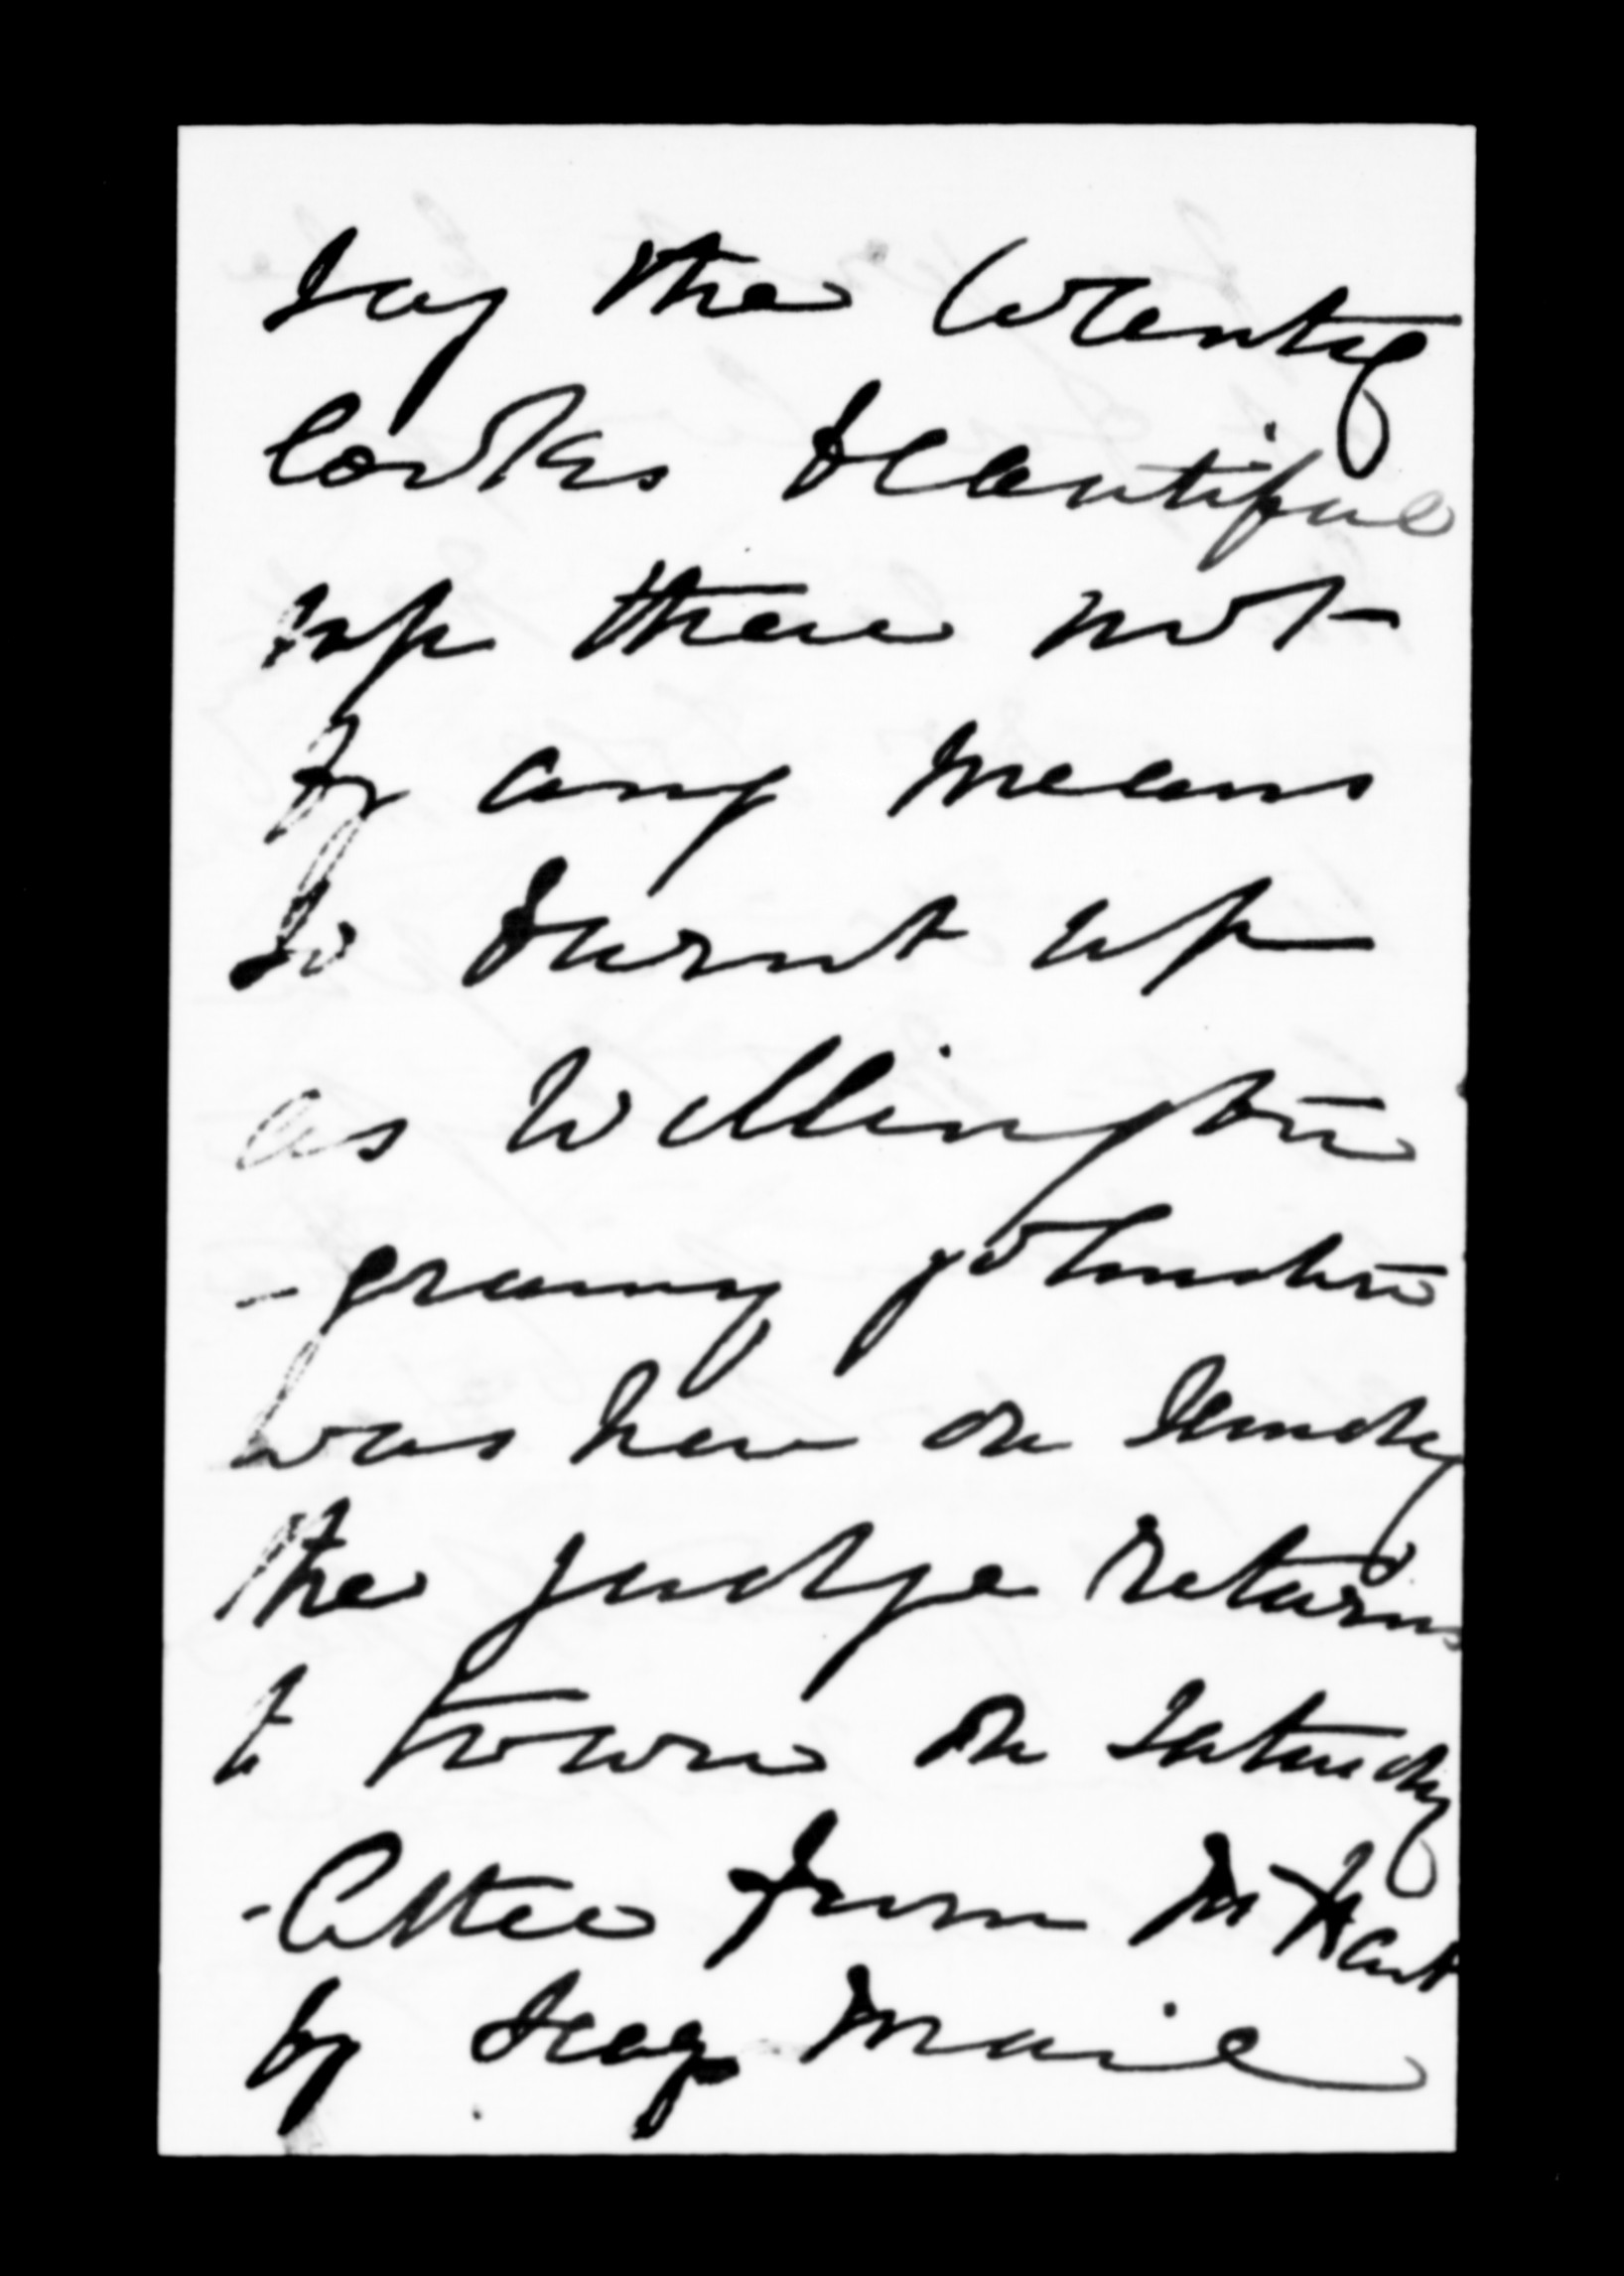 say the Country
looks beautiful
up there not
by any means
so burnt up
as Wellington
- granny Johnston
was here on Sunday
the judge returns
to town on Saturday
- letter from Mr Hart
by Mail